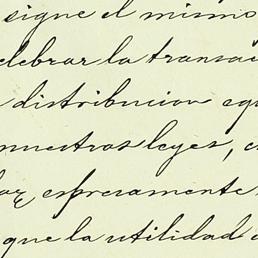 sigue el mismo
elebrar la transac
distribucion equ
nuestras leyes, c
espresamente
que la utilidad